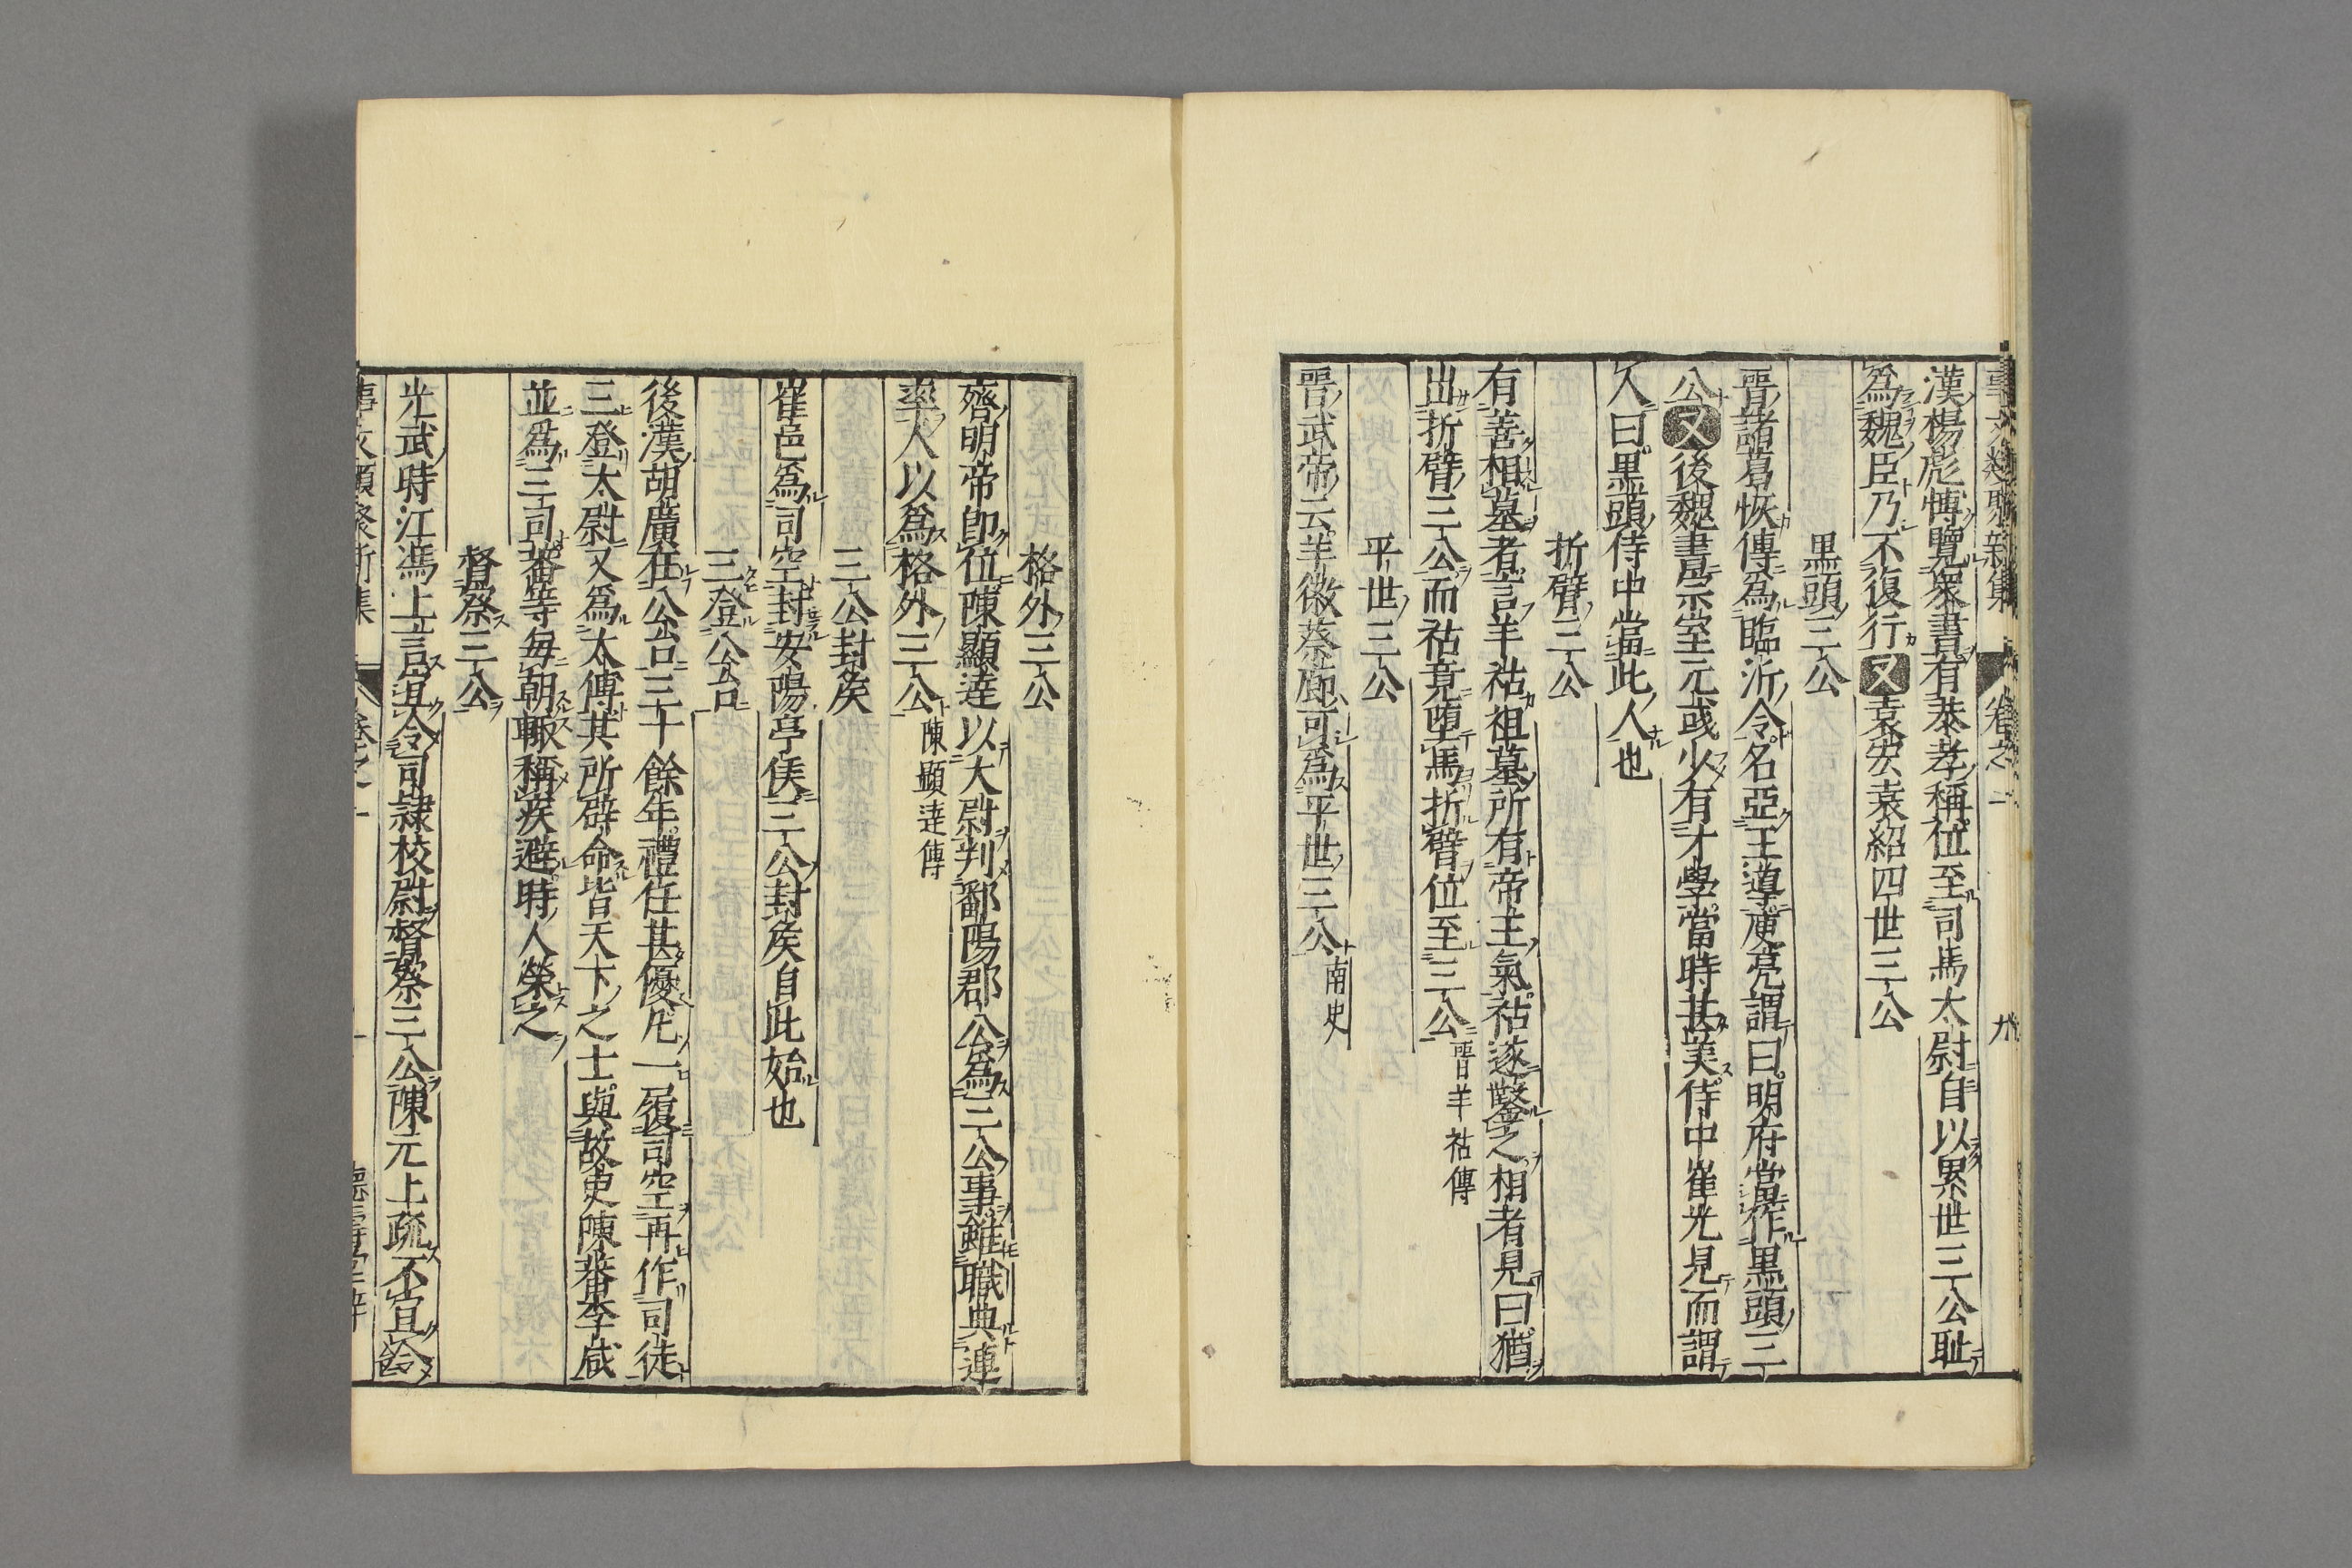 事文類聚新集　卷之二　九
漢楊彪博覽衆書有恭孝稱位至司馬太尉自以累世三公耻
爲魏臣乃不復行又袁宏袁紹四世三公
黒頭三公
晉諸葛恢傳爲臨沂令名亞王導庾亮謂曰明府當作黒頭三
公又後魏書宗室元彧少有才學當時甚美侍中崔光見而謂
人曰黒頭侍中當此人也
折臂三公
有善相墓者言羊祜祖墓所有帝王氣祜遂鑿之相者見曰猶
出折臂三公而祜竟墮馬折臂位至三公晉羊祜傳
平世三公
晉武帝云羊徽蔡廓可爲平世三公南史
格外三公
齊明帝即位陳顯達以大尉判鄱陽郡公爲三公事雖職典連
率人以爲格外三公陳顯達傳
三公封矦
崔邑爲司空封安陽亭侯三公封矦自此始也
三登公台
後漢胡廣在公台三十餘年禮任甚優凡一履司空再作司徒
三登太尉又爲太傅其所辟命皆天下之士與故吏陳蕃李咸
並爲三司蕃等每朝輙稱疾避時人榮之
督察三公
光武時江馮上言宜令司隷校尉督察三公陳元上疏不宜令